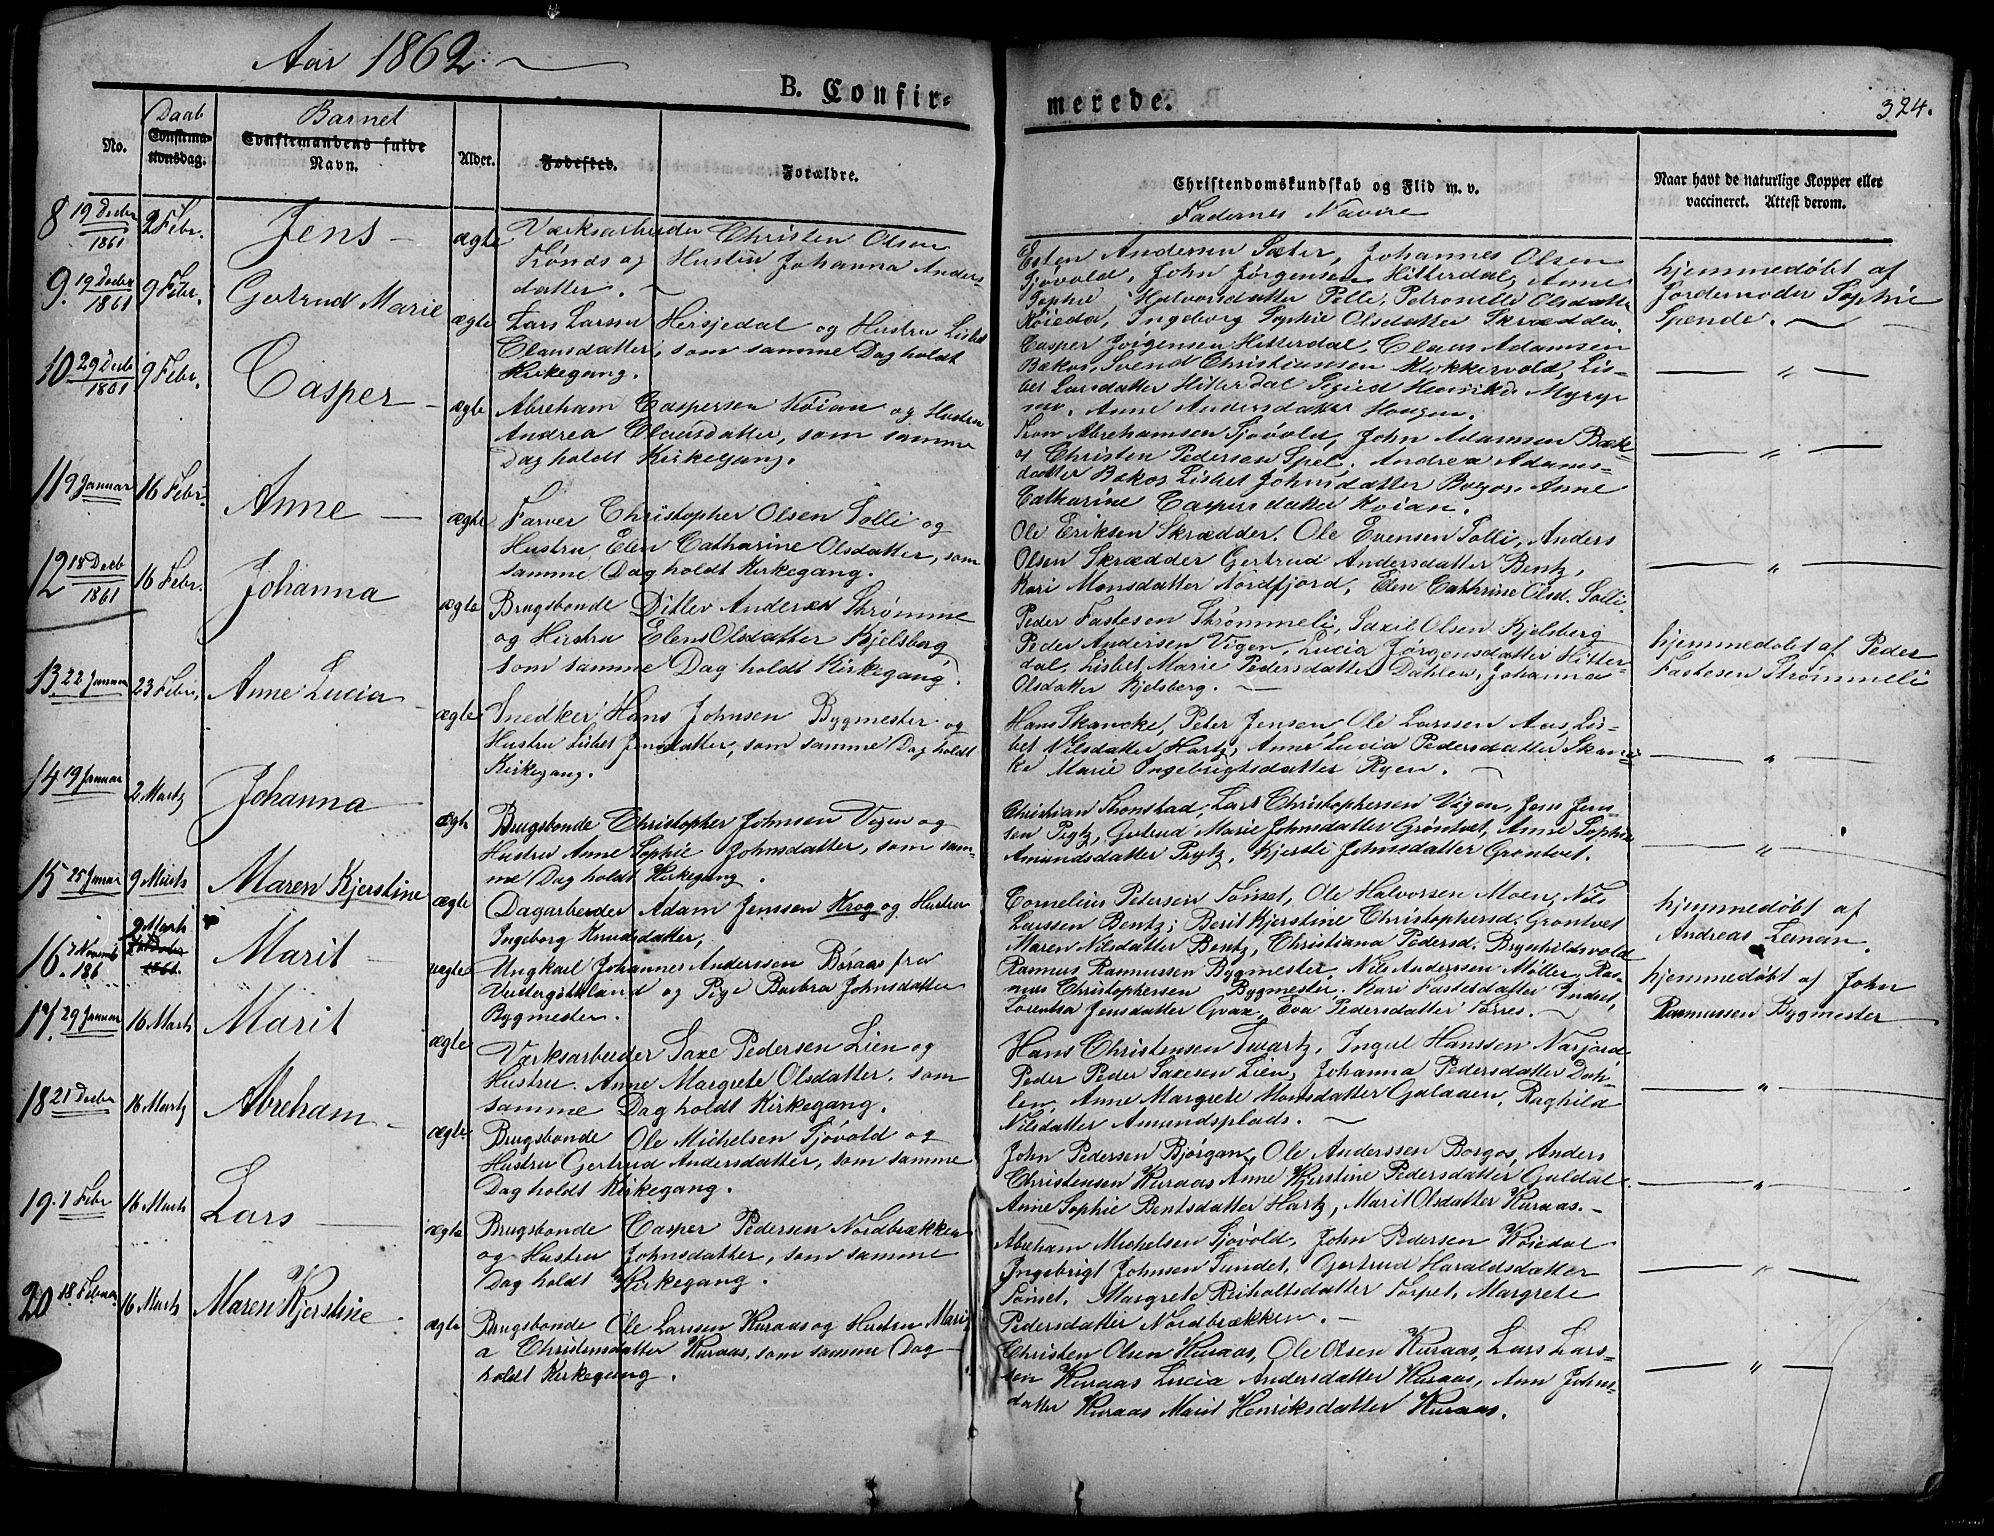 Aar 1862.
B. Confir-
merede.
324.
No.
Daab
Confirma-
tionsdag.
Barnet
Confirmandens fulde
Navn.
Alder.
Fødested.
Forældre.
Christendomskundskab og Flid m. v.
Faderne's Navne
Naar havt de naturlige Kopper eller
vaccineret. Attest derom.
8 19 Decbr 1861 2 Febr. Jens ægte
Værksarbeider Christen Olsen
Trønds og Hustru Johanna Anders-
datter.
Esten Andersen Sæter, Johannes Olsen
Sjøvold, John Jørgensen Hitterdal, Anne
Sophie Halvorsdatter Pelle, Petronelle Olsdatter
Køiedal, Ingeborg Sophie Olsdatter Skrædder.
hjemmedøbt af
Jordemoder Sophie
Spende.
9. 19 Decbr 1861 9 Febr. Gertrud Marie ægte
Lars Larsen Hersjedal og Hustru Lisbet
Clausdatter, som samme Dag holdt
Kirkegang.
Casper Jørgensen Hitterdal, Claus Adamsen
Bakos, Svend Christiansen Klokkervold, Lis-
bet Larsdatter Hitterdal Sigrid Henriksd. Myrge
mo. Anne Andersdatter Hougen.
— " —
10 29 Decb 1861 9 Febr. Casper ægte
Abraham Caspersen Køian og Hustru
Andrea Clausdatter, som samme
Dag holdt Kirkegang.
Tron Abrehamsen Sjøvold, John Adamsen Bak-
os Christen Pedersen Spel, Andrea Adams-
datter Bakos Lisbet Johnsdatter Borgos, Anne
Catharine Caspersdatter Køian.
— " —
11 9 Januar 16 Febr. Anne ægte
Farver Christopher Olsen Tolli og
Hustru Elen Catharine Olsdatter, som
samme Dag holdt Kirkegang.
Ole Eriksen Skrædder, Ole Evensen Tolli, Anders
Olsen Skrædder Gertrud Andersdatter Bentz,
Kari Monsdatter Nordfjord, Elen Cathrine Olsd. Tolli.
— " —
12 18 Decb 1861 16 Febr. Johanna ægte
Brugsbonde Ditlev Andersen Strømme
og Hustru Elens Olsdatter Kjelsberg
som samme Dag holdt Kirkegang.
Peder Fastesen Strømmeli, Saxil Olsen Kjelsberg
Peder Andersen Vigen, Lucia Jørgensdatter Hitter-
dal, Lisbet Marie Pedersdatter Dahlen, Johanna
Olsdatter Kjelsberg.
hjemmedøbt af Peder
Fastesen Strømmeli
13 22 Januar 23 Febr. Anne Lucia ægte
Snedker Hans Johnsen Bygmester og
Hustru Lisbet Jensdatter, som samme Dag holdt
Kirkegang.
Hans Skancke, Peter Jensen Ole Larssen Aas, Lis-
bet Nilsdatter Hartz, Anne Lucia Pedersdatter Skanc-
ke Marie Ingebrigtsdatter Ryen.
— " —
14 19 Januar 2 Martz Johanna ægte
Brugsbonde Christopher Johnsen Vigen og
Hustru Anne Sophie Johnsdatter, som sam-
me Dag holdt Kirkegang.
Christian Thonstad, Lars Christophersen Vigen, Jens Jens-
sen Prytz, Gertrud Marie Johnsdatter Grøntvet, Anne Sophie
Amundsdatter Prytz, Kjersti Johnsdatter Grøntvet.
— " —
15 25 Januar 9 Marts Maren Kjerstine ægte
Dagarbeider Adam Jenssen Krog og Hustru
Ingeborg Knudsdatter,
Cornelius Petersen Tønset, Ole Halvorssen Moen, Nils
Larssen Bentz; Berit Kjerstine Christophersd. Grøntvet
Maren Nilsdatter Bentz, Christiana Pedersd. Brynhildsvold
hjemmedøbt af
Andreas Leman.
16. 7 Novemb 186 9 Marts Marit uægte
Ungkarl Johannes Anderssen Boraas fra
Vestergøtkland og Pige Barbra Johnsdatter
Bygmester.
Rasmus Rasmussen Bygmester, Nils Anderssen Møller, Ras-
mus Christophersen Bygmester, Kari Fastesdatter Indset,
Lorentsa Jensdatter Gvax, Eva Pedersdatter Torres.
hjemmedøbt af John
Rasmussen Bygmester
17. 29 Januar 16 Marts Marit ægte
Værksarbeider Saxe Pedersen Lien og
Hustru Anne Margrete Olsdatter, som
samme Dag holdt Kirkegang.
Hans Christensen Svartz, Ingul Hanssen Narjord
Peder Peder Saxesen Lien, Johanna Pedersdatter Dah-
len, Anne Margrete Monsdatter Galaaen, Raghild
Nilsdatter Amundsplads.
— " —
18 21 Decbr 16 Martz Abreham ægte
Brugsbonde Ole Michelsen Sjøvold og
Hustru Gertrud Andersdatter, som samme
Dag holdt Kirkegang.
John Pedersen Bjørgan, Ole Anderssen Borgos, Anders
Christensen Kuraas Anne Kjerstine Pedersdatter Guldal
Anne Sophie Bentsdatter Hartz, Marit Olsdatter Kuraas.
— " —
19. 1 Febr 16 Marts Lars ægte
Brugsbonde Casper Pedersen Nordbrækken
og Hustru Johnsdatter, som samme
Dag holdt Kirkegang.
Abreham Michelsen Sjøvold, John Pedersen Køiedal
Ingebrigt Johnsen Sundet, Gertrud Haraldsdatter
Tønset, Margrete Reiholtsdatter Torpet, Margrete
Pedersdatter Nordbrækken.
— " —
20 18 Februar 16 Martz Maren Kjerstine ægte
Brugsbonde Ole Larssen Kuraas og Hustru Mari-
a Christensdatter Kuraas, som samme Dag
holdt Kirkegang.
Christen Olsen Kuraas, Ole Olsen Kuraas, Lars Lars-
sen Kuraas Lucia Andersdatter Kuraas, Ann Johns-
datter Kuraas Marit Henriksdatter Kuraas.
— " —